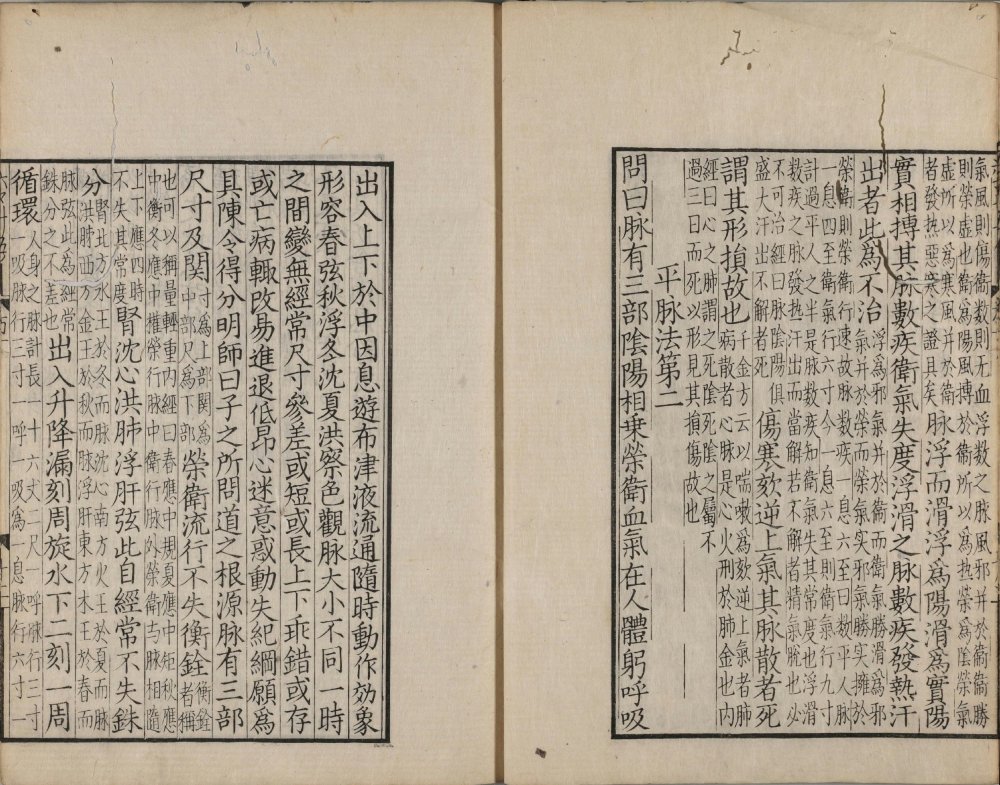 氣風則傷衞數則无血浮数之脉風邪并於衞衞勝
則榮虛也衞爲陽風搏於衞所以爲热榮爲陰榮氣
虛所以爲寒風并於衞
者發热惡寒之證具矣
脉浮而滑浮爲陽滑爲實陽
實相搏其脉數疾衛氣失度浮滑之脉數疾發熱汗
出者此爲不治
浮爲邪氣并於衞而衞氣勝滑爲邪
氣并於榮而榮氣实邪氣勝实擁於
榮衞則榮衞行速故脉数疾一息六至曰数平人脉
一息四至衞氣行六寸今一息六至則衞氣行九寸
計過平人之半是脉数疾知衞氣失其常度也浮滑
数疾之脉發热汗出而當解若不解者精氣脫也必
不可治經曰脉陰陽俱
盛大汗出不解者死
傷寒欬逆上氣其脉散者死
謂其形損故也
千金方云以喘嗽爲欬逆上氣者肺
病散者心脉是心火刑於肺金也内
經曰心之肺謂之死陰死陰之屬不
過三日而死以形見其損傷故也
平脉法第二
問曰脉有三部陰陽相乗榮衛血氣在人體躬呼吸
出入上下於中因息遊布津液流通隨時動作効象
形容春弦秋浮冬沈夏洪察色觀脉大小不同一時
之間變無經常尺寸參差或短或長上下乖錯或存
或亡病輙改易進退低昂心迷意惑動失紀綱願爲
具陳令得分明師曰子之所問道之根源脉有三部
尺寸及関
寸爲上部関爲
中部尺爲下部
榮衛流行不失衡銓
衡銓者稱
也可以稱量輕重内經曰春應中規夏應中矩秋應
中衡冬應中權榮行脉中衞行脉外榮衞与脉相隨
上下應四時
不失其常度
腎沈心洪肺浮肝弦此自經常不失銖
分
腎北方水王於冬而脉沈心南方火王於夏而脉
洪肺西方金王於秋而脉浮肝東方木王於春而
脉弦此爲經常
銖分之不差也
出入升降漏刻周旋水下二刻一周
循環
人身之脉計長一十六丈二尺一呼脉行三寸
一吸脉行三寸一呼一吸爲一息脉行六寸一